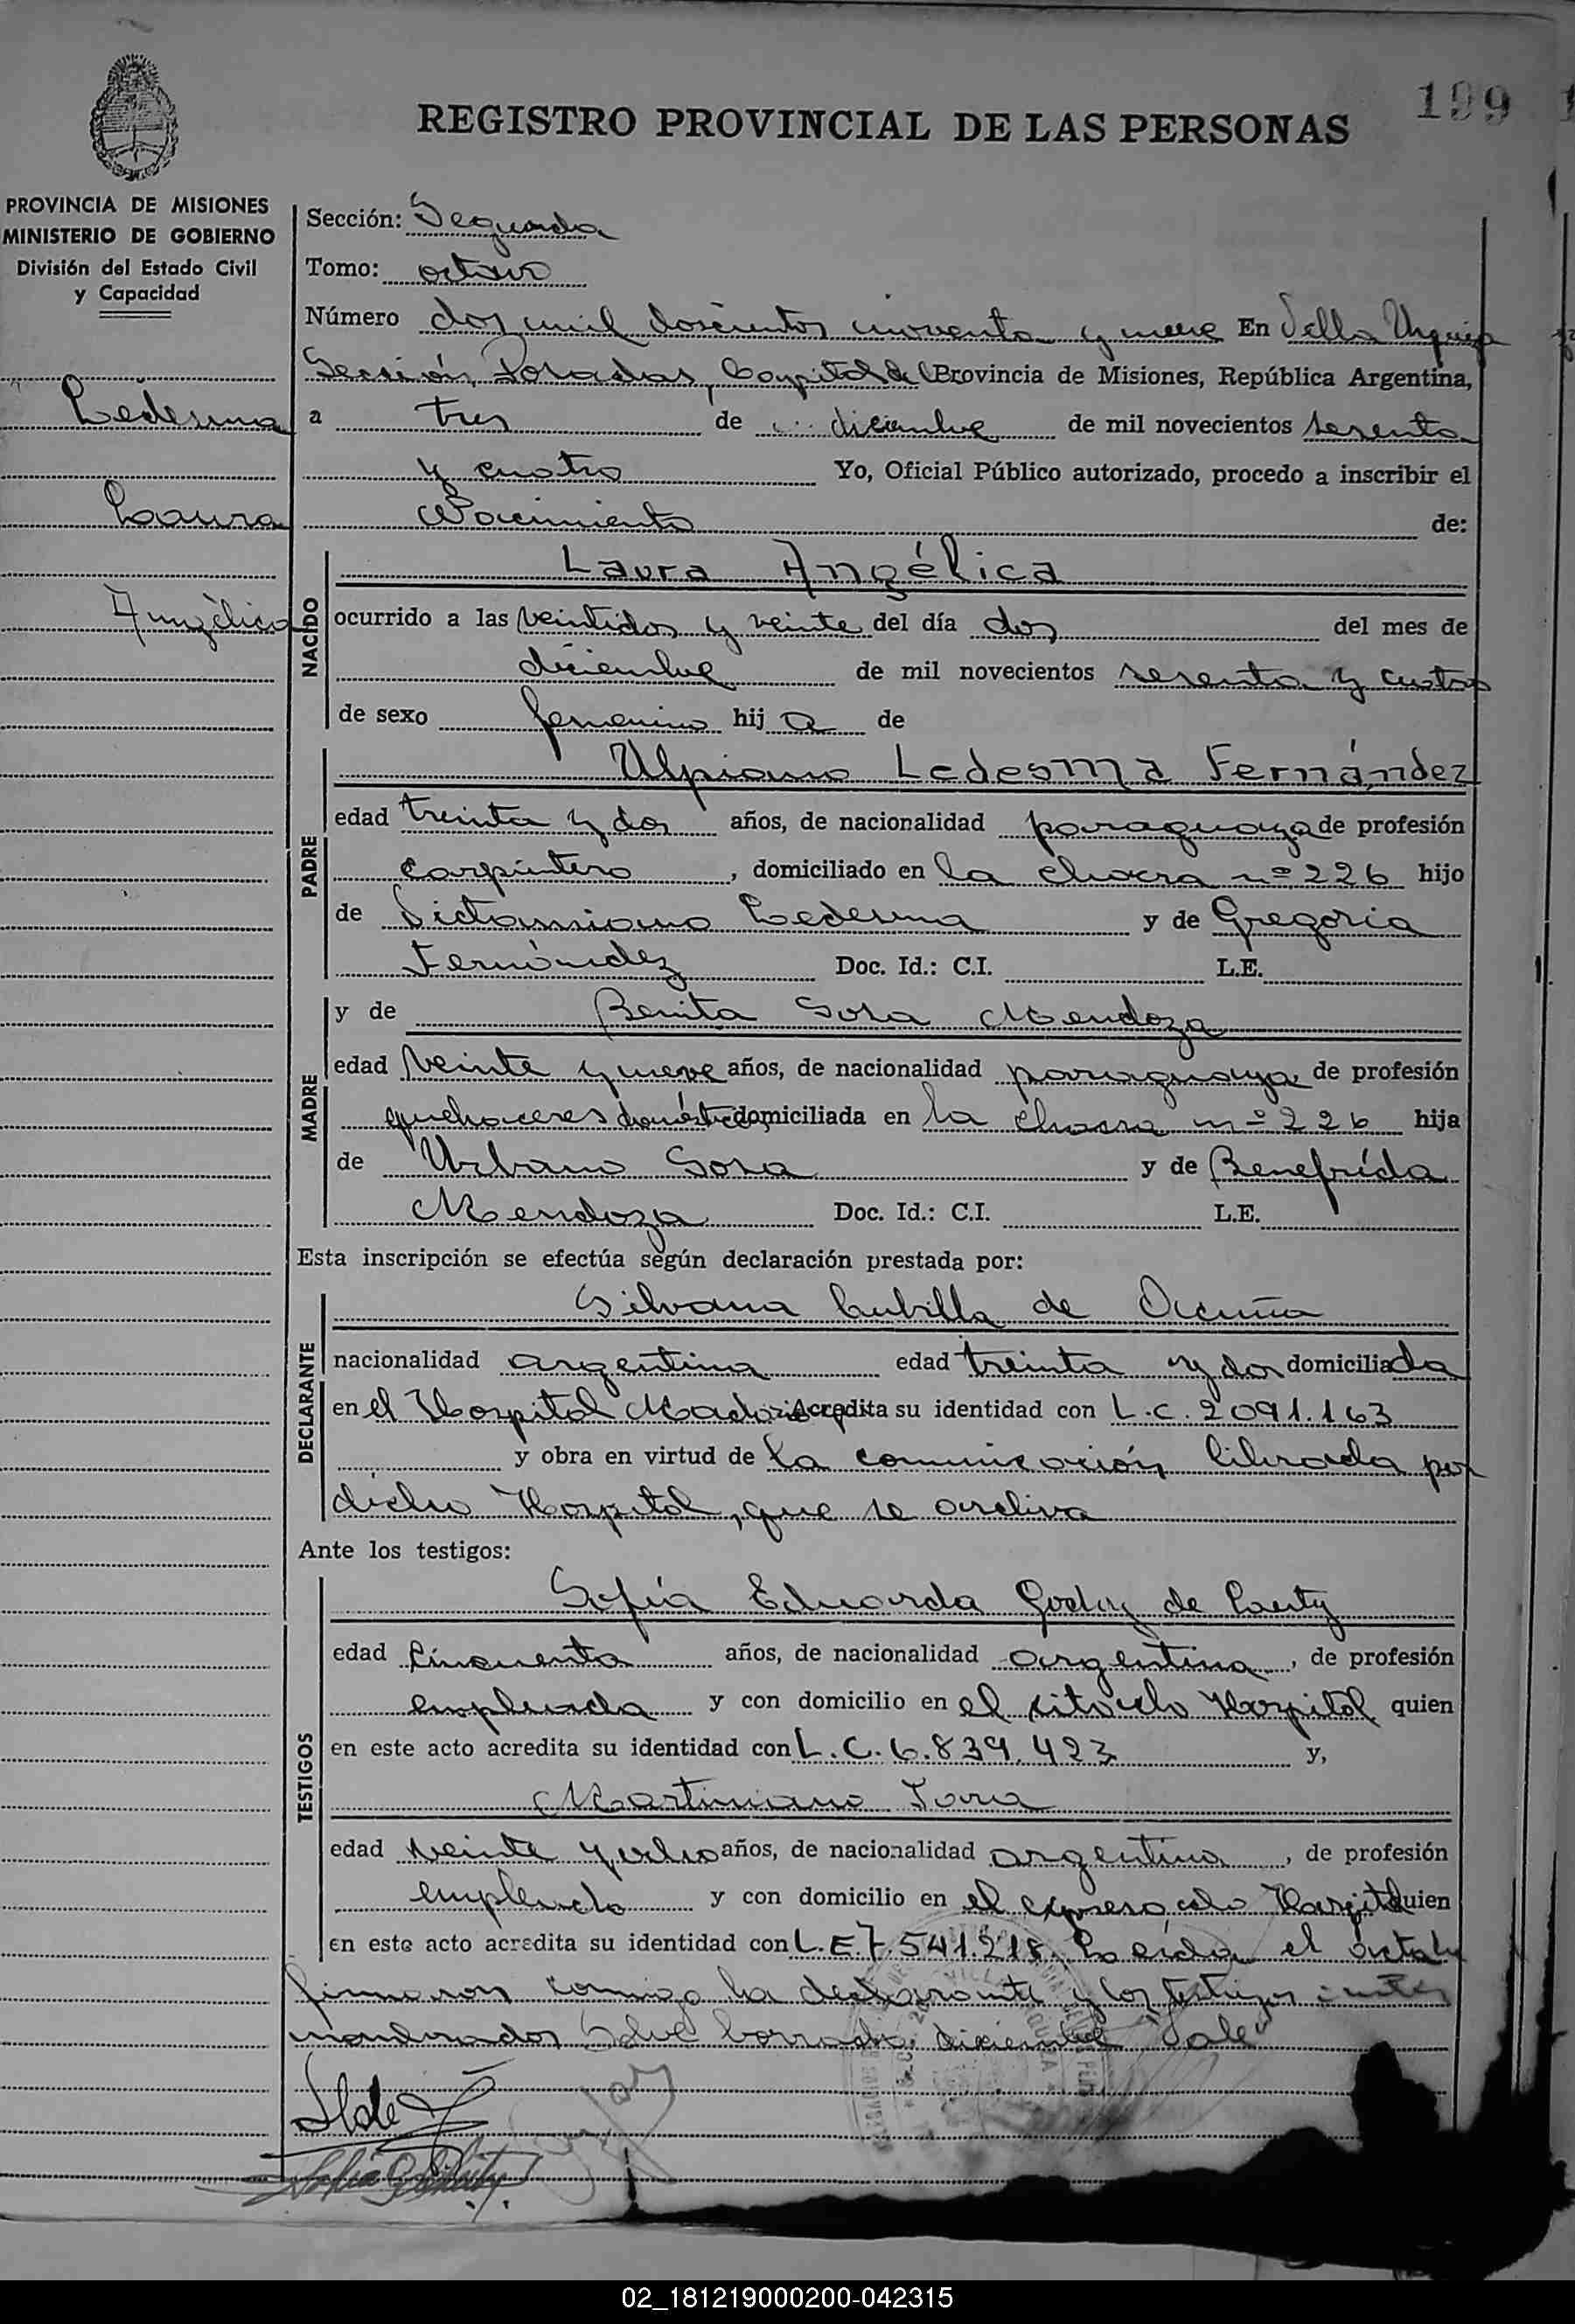 199
REGISTRO PROVINCIAL DE LAS PERSONAS
PROVINCIA DE MISIONES
MINISTERIO DE GOBIERNO
División del Estado Civil
y Capacidad
Ledesma
Laura
Angélica
Sección: Segunda
Tomo: octavo
Número dos mil doscientos noventa y nueve En Villa Urquiza
Sección, Posadas, Capital de Provincia de Misiones, República Argentina,
a tres de diciembre de mil novecientos sesenta
y cuatro Yo, Oficial Público autorizado, procedo a inscribir el
Nacimiento de:
NACIDO
Laura Angélica
ocurrido a las veintidos y veinte del día dos del mes de
diciembre de mil novecientos sesenta y cuatro
de sexo femenino hija de
PADRE
Ulpiano Ledesma Fernández
edad treinta y dos años, de nacionalidad paraguaya de profesión
carpintero, domiciliado en la chacra nº 226 hijo
de Ledesma y de Gregoria
Fernández Doc. Id.: C.I. L.E.
MADRE
y de Benita Sosa Mendoza
edad veinte y nueve años, de nacionalidad paraguaya, de profesión
quehaceres domésticos, domiciliada en la chacra nº 226 hija
de Urbano Sosa y de Benefrida
Mendoza Doc. Id.: C.I. L.E.
Esta inscripción se efectúa según declaración prestada por:
DECLARANTE
Silvana Cubilla de Acuña
nacionalidad argentina edad treinta y dos domiciliada
en el Hospital Madariaga Acredita su identidad con L.C. 2091.163
y obra en virtud de la comunicación librada por
dicho Hospital, que se archiva
Ante los testigos:
TESTIGOS
Sofía Eduarda Godoy de
edad cincuenta años, de nacionalidad argentina, de profesión
empleada y con domicilio en el citado Hospital quien
en este acto acredita su identidad con L.C. 6.839.423 y,
Martiniano
edad veinte y ocho años, de nacionalidad argentina, de profesión
empleado y con domicilio en el expresado Hospital quien
en este acto acredita su identidad con L.E 7.541.218. Leída el acta la
firmaron conmigo la declarante y los testigos antes
mencionados Sobre borrado: diciembre "Vale"
02_181219000200-042315